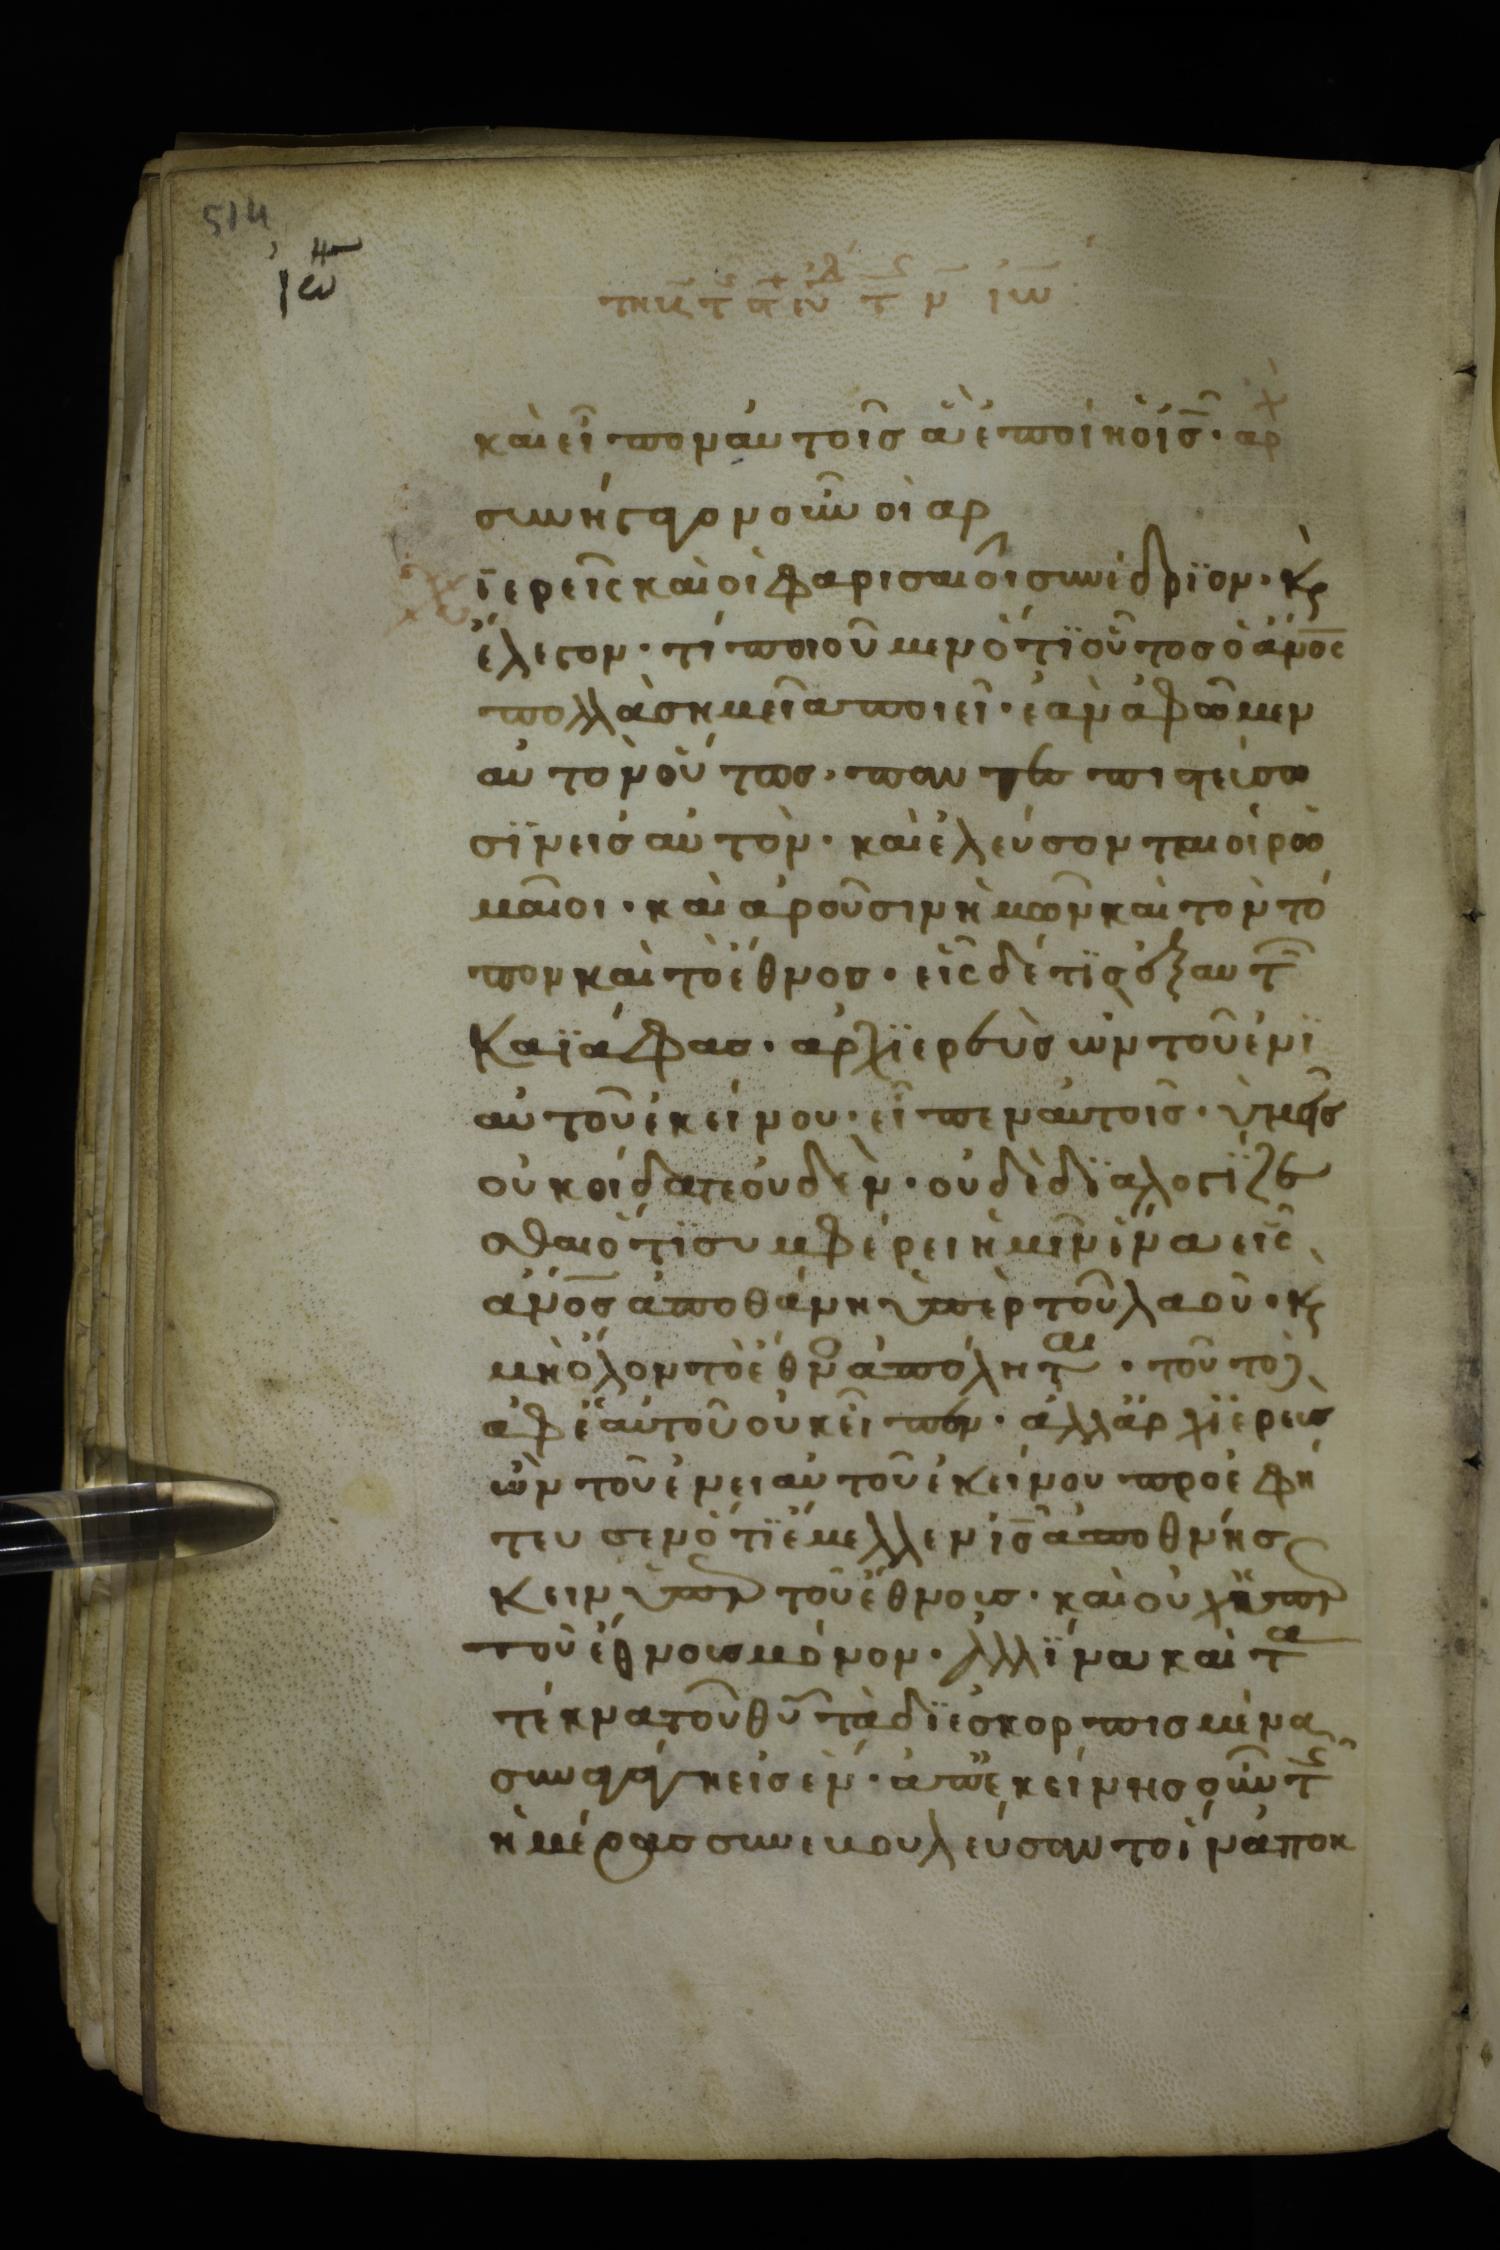 514
ιω
καὶ εἶπον αὐτοῖς ἃ ἐποίησεν ὁ ἰς̅·
συνήγαγον οὖν οἱ ἀρ
ϊερεῖς καὶ οἱ φαρισαῖοι συνέδρϊον· κ̀
ἔλεγον· τί ποιοῦμεν ὅτϊ οὗτος ὁ ἄνος̅
πολλὰ σημεῖα ποιεῖ· ἐὰν ἀφῶμεν
αὐτὸν οὕτως, παντες πιστεύσω
σϊν εἰς αὐτὸν· καὶ ἐλεύσονται οἱ ρω
μαῖοι· καὶ ἀροῦσιν ἡμῶν καὶ τὸν τό
πον καὶ τὸ ἔθνος· εἷς δέ τϊς ἐξ αυτ
Καϊάφας· ἀρχϊερεὺς ὢν τοῦ ἐνϊ
αυτοῦ ἐκείνου· εἶπεν αὐτοῖς· ὑμεῖς
οὐκ οἴδατε οὐδὲν· οὐδὲ δϊαλογίζε
σθαι ὅτϊ συμφέρει ἡμῖν ἵνα εἷς
ἄνος̅ ἀποθάνη ὑπὲρ τοῦ λαοῦ· κ̀
μὴ ὅλον τὸ ἔθνο ἀπόληται· τοῦτο δ
ἀφ ἑαυτοῦ οὐκ εἶπεν· ἀλλ ἀρχϊερεὺς
ὢν τοῦ ἐνειαυτοῦ ἐκείνου προεφή
τευσεν ὅτϊ ἔμελλεν ις̅ ἀποθνήσ
κειν ὑπὲρ τοῦ ἔθνους· καὶ οὐχ ὑπὲρ
τοῦ ἔθνους μόνον· ἀλλ ϊνα καὶ τα
τέκνα τοῦ θυ̅ τὰ δϊεσκορπισμένα
συναγάγη εἰς ἑν· ἀπ ἐκείνης οὖν τ
ἡμέρας συνεβουλεύσαντο ἵν αποκ